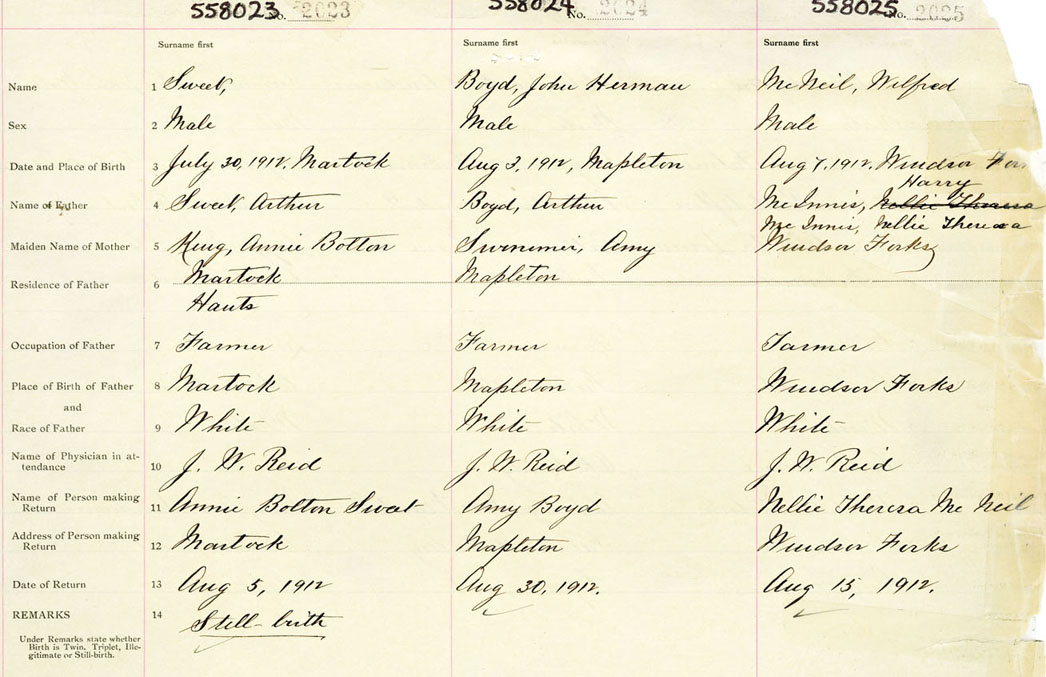 558023 No. 2023 558024 No. 2024 558025 No. 2025
Surname first Surname first Surname first
Name 1 Sweet, Boyd, John Herman McNeil, Wilfred
Sex 2 Male Male Male
Date and Place of Birth 3 July 30, 1912, Martock Aug 3, 1912, Mapleton Aug 7, 1912. Windsor For
Harry
Name of Father 4 Sweet, Arthur Boyd, Arthur McInnis, Nellie Theresa
McInnis, Nellie Theresa
Maiden Name of Mother 5 King, Annie Bolton Swinemir, Amy Windsor Forks
Residence of Father 6 Martock Mapleton
Hants
Occupation of Father 7 Farmer Farmer Farmer
Place of Birth of Father 8 Martock Mapleton Windsor Forks
and
Race of Father 9 White White White
Name of Physician in at-
tendance 10 J. W. Reid J. W. Reid J. W. Reid
Name of Person making
Return 11 Annie Bolton Sweet Amy Boyd Nellie Theresa McNeil
Address of Person making
Return 12 Martock Mapleton Windsor Forks
Date of Return 13 Aug 5, 1912 Aug 30, 1912. Aug 15, 1912.
REMARKS 14 Still-birth
Under Remarks state whether
Birth is Twin, Triplet, Ille-
gitimate or Still-birth.